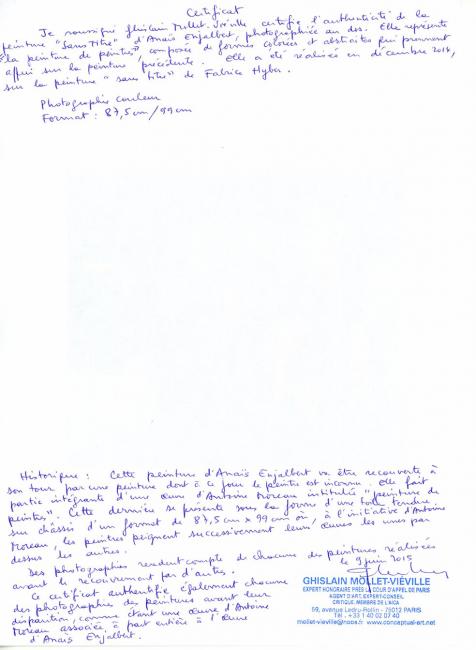 Certificat
Je soussigné Ghislain Mollet-Viéville certifie l'authenticité de la
peinture "Sans titre" d'Anaïs Enjalbert, photographiée au dos. Elle représente
"la peinture de peintres", composée de formes colorées et abstraites qui prennent
appui sur la peinture précédente. Elle a été réalisée en décembre 2014,
sur la peinture "sans titre" de Fabrice Hyber.
Photographie couleur
Format : 87,5cm/99cm
Historique : Cette peinture d'Anaïs Enjalbert va être recouverte à
son tour par une peinture dont à ce jour le peintre est inconnu. Elle fait
partie intégrante d'une œuvre d'Antoine Moreau intitulée "peinture de
peintres". Cette dernière se présente sous la forme d'une toile tendue
sur châssis d'un format de 87,5cm x 99cm où à l'initiative d'Antoine
Moreau, les peintres peignent successivement leurs œuvres les unes par
dessus les autres.
Des photographies rendent compte de chacune des peintures réalisées
avant le recouvrement par d'autres.
le 9 juin 2015
Ce certificat authentifie également chacune
des photographies des peintures avant leur
disparition, comme étant une œuvre d'Antoine
Moreau associée à part entière à l'œuvre
d'Anaïs Enjalbert.
GHISLAIN MOLLET-VIÉVILLE
EXPERT HONORAIRE PRÈS LA COUR D'APPEL DE PARIS
AGENT D'ART, EXPERT-CONSEIL
CRITIQUE, MEMBRE DE L'AICA
59, avenue Ledru-Rollin - 75012 PARIS
Tél. +33 1 40 02 07 40
mollet-vieville@noos.fr www.conceptual-art.net